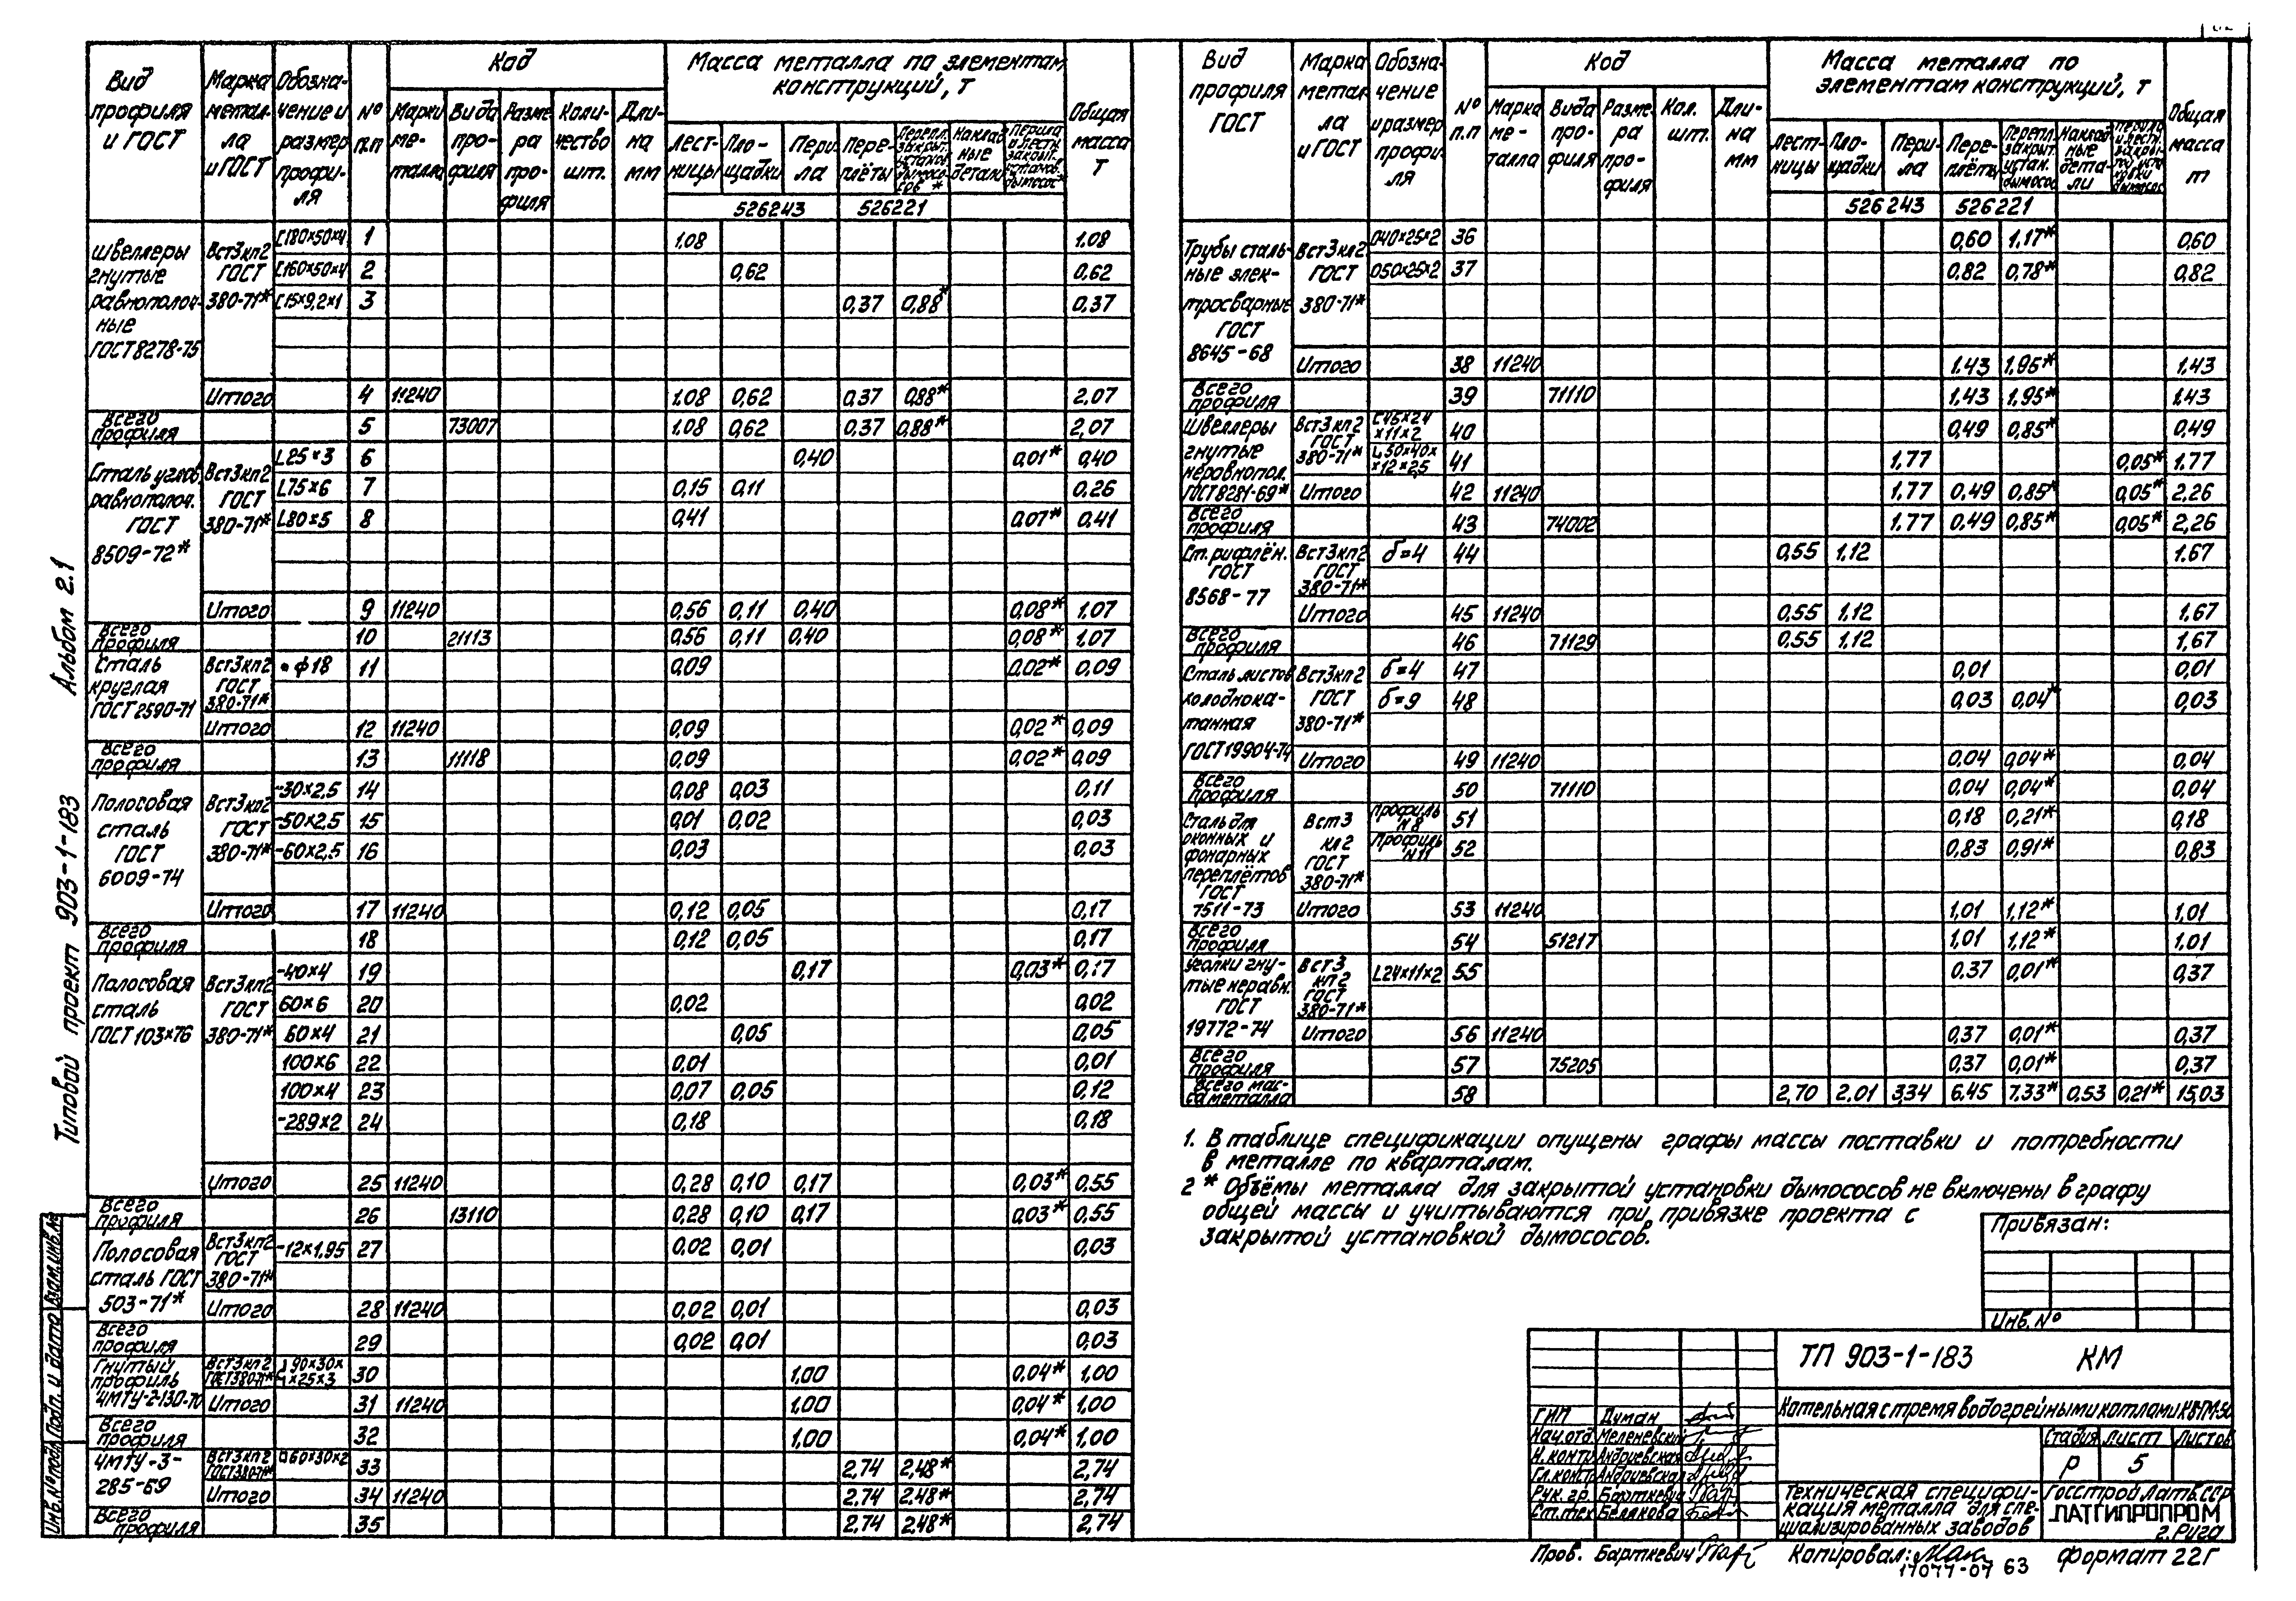 Альбом 2.1
Типовой проект 903-1-183
Вид профиля и ГОСТ | Марка металла и ГОСТ | Обозначение и размер профиля | № п.п | Код | Масса металла по элементам конструкций, т | Общая масса т
Марки металла | Вида профиля | Размера профиля | Количество шт. | Длина мм | Лестницы | Площадки | Перила | Переплёты | Накладные детали
526243 | 526221
Швеллеры гнутые равнополочные ГОСТ 8278-75 | ВСт3кп2 ГОСТ 380-71*
[180×50×4 | 1 | 1.08 | 1.08
[160×50×4 | 2 | 0,62 | 0.62
[15×9,2×1 | 3 | 0,37 | 0,88* | 0,37
Итого | 4 | 11240 | 1.08 | 0,62 | 0,37 | 0,88* | 2,07
Всего профиля | 5 | 73007 | 1.08 | 0,62 | 0,37 | 0,88* | 2,07
Сталь углов. равнополоч. ГОСТ 8509-72* | ВСт3кп2 ГОСТ 380-71*
L25×3 | 6 | 0,40 | 0,01* | 0,40
L75×6 | 7 | 0,15 | 0,11 | 0.26
L80×5 | 8 | 0,41 | 0,07* | 0,41
Итого | 9 | 11240 | 0,56 | 0,11 | 0,40 | 0,08* | 1.07
Всего профиля | 10 | 21113 | 0,56 | 0,11 | 0,40 | 0,08* | 1.07
Сталь круглая ГОСТ 2590-71 | ВСт3кп2 ГОСТ 380-71*
• ф18 | 11 | 0,09 | 0,02* | 0,09
Итого | 12 | 11240 | 0,09 | 0,02* | 0,09
Всего профиля | 13 | 11118 | 0,09 | 0,02* | 0,09
Полосовая сталь ГОСТ 6009-74 | ВСт3кп2 ГОСТ 380-71*
-30×2,5 | 14 | 0,08 | 0,03 | 0,11
-50×2,5 | 15 | 0,01 | 0,02 | 0,03
-60×2,5 | 16 | 0,03 | 0,03
Итого | 17 | 11240 | 0,12 | 0,05 | 0,17
Всего профиля | 18 | 0,12 | 0,05 | 0,17
Полосовая сталь ГОСТ 103×76 | ВСт3кп2 ГОСТ 380-71*
-40×4 | 19 | 0,17 | 0,03* | 0,17
60×6 | 20 | 0,02 | 0,02
60×4 | 21 | 0,05 | 0,05
100×6 | 22 | 0,01 | 0,01
100×4 | 23 | 0,07 | 0,05 | 0,12
-289×2 | 24 | 0,18 | 0,18
Итого | 25 | 11240 | 0,28 | 0,10 | 0,17 | 0,03* | 0,55
Всего профиля | 26 | 13110 | 0,28 | 0,10 | 0,17 | 0,03* | 0,55
Полосовая сталь ГОСТ 503-71* | ВСт3кп2 ГОСТ 380-71*
-12×1,95 | 27 | 0,02 | 0,01 | 0,03
Итого | 28 | 11240 | 0,02 | 0,01 | 0,03
Всего профиля | 29 | 0,02 | 0,01 | 0,03
Гнутый профиль ЧМТУ-2-130-70 | ВСт3кп2 ГОСТ 380-71* | 90×30××25×3 | 30 | 1,00 | 0,04* | 1,00
Итого | 31 | 11240 | 1,00 | 0,04* | 1,00
Всего профиля | 32 | 1,00 | 0,04* | 1,00
ЧМТУ-3-285-69 | ВСт3кп2 ГОСТ 380-71* | □60×30×2 | 33 | 2,74 | 2,48* | 2,74
Итого | 34 | 11240 | 2,74 | 2,48* | 2,74
Всего профиля | 35 | 2,74 | 2,48* | 2,74
Вид профиля ГОСТ | Марка металла и ГОСТ | Обозначение и размер профиля | № п.п | Код | Масса металла по элементам конструкций, т | Общая масса т
Марка металла | Вида профиля | Размера профиля | Кол. шт. | Длина мм | Лестницы | Площадки | Перила | Переплёты | Перепл. закрыт. устан. дымосос | Накладные детали
526243 | 526221
Трубы стальные электросварные ГОСТ 8645-68 | ВСт3кп2 ГОСТ 380-71*
□40×25×2 | 36 | 0,60 | 1,17* | 0,60
□50×25×2 | 37 | 0,82 | 0,78* | 0,82
Итого | 38 | 11240 | 1.43 | 1,95* | 1.43
Всего профиля | 39 | 71110 | 1.43 | 1.95* | 1.43
Швеллеры гнутые неравнопол. ГОСТ 8281-69* | ВСт3кп2 ГОСТ 380-71*
[45×24×11×2 | 40 | 0,49 | 0,85* | 0,49
50×40××12×2,5 | 41 | 1.77 | 0,05* | 1.77
Итого | 42 | 11240 | 1.77 | 0,49 | 0,85* | 0,05* | 2,26
Всего профиля | 43 | 74002 | 1.77 | 0,49 | 0,85* | 0,05* | 2,26
Ст. рифлён. ГОСТ 8568-77 | ВСт3кп2 ГОСТ 380-71* | б=4 | 44 | 0,55 | 1,12 | 1.67
Итого | 45 | 11240 | 0,55 | 1.12 | 1,67
Всего профиля | 46 | 71129 | 0,55 | 1,12 | 1,67
Сталь листов. холоднокатанная ГОСТ 19904-74 | ВСт3кп2 ГОСТ 380-71*
б=4 | 47 | 0,01 | 0,01
б=9 | 48 | 0,03 | 0,04* | 0,03
Итого | 49 | 11240 | 0,04 | 0,04* | 0,04
Всего профиля | 50 | 71110 | 0,04 | 0,04* | 0,04
Сталь для оконных и фонарных переплётов ГОСТ 7511-73 | ВСт3кп2 ГОСТ 380-71*
Профиль N8 | 51 | 0,18 | 0,21* | 0,18
Профиль N11 | 52 | 0,83 | 0,91* | 0,83
Итого | 53 | 11240 | 1,01 | 1,12* | 1.01
Всего профиля | 54 | 51217 | 1.01 | 1,12* | 1.01
Уголки гнутые неравн. ГОСТ 19772-74 | ВСт3кп2 ГОСТ 380-71* | L24×11×2 | 55 | 0,37 | 0,01* | 0,37
Итого | 56 | 11240 | 0,37 | 0,01* | 0,37
Всего профиля | 57 | 75205 | 0,37 | 0,01* | 0,37
Всего масса металла | 58 | 2,70 | 2.01 | 3,34 | 6.45 | 7.33* | 0,53 | 0,21* | 15,03
1. В таблице спецификации опущены графы массы поставки и потребности
в металле по кварталам.
2 * Объёмы металла для закрытой установки дымососов не включены в графу
общей массы и учитываются при привязке проекта с
закрытой установкой дымососов.
Привязан:
Инв. №
ТП 903-1-183 КМ
Котельная с тремя водогрейными котлами КВ-ГМ-50
ГИП Думан
Нач.отд. Меленевский
Н.контр. Андриевская
Гл.констр. Андриевская
Рук.гр. Барткевич
Ст.тех. Белякова
Стадия | Лист | Листов
Р | 5
Техническая специфи-
кация металла для спе-
циализированных заводов
Госстрой Латв.ССР
ЛАТГИПРОПРОМ
г. Рига
Пров. Барткевич
Копировал:
Формат 22Г
17077-07 63
Инв.№ подл. Подп. и дата Взам.инв.№